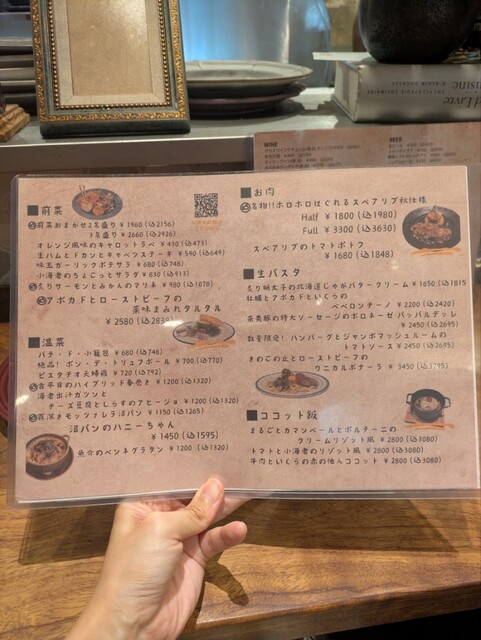 ■前菜
前菜おまかせ2名盛り ¥1960(込2156)
3名盛り ¥2660(込2926)
オレンジ風味のキャロットラペ ¥430(込473)
生ハムとドカンとキャベツステーキ ¥590(込649)
味玉ガーリックポテサラ ¥680(込748)
小海老のちょこっとサラダ ¥830(込913)
炙りサーモンとみかんのマリネ ¥980(込1078)
アボカドとローストビーフの
薬味まみれタルタル
¥2580(込2838)
■温菜
パテ・ド・小籠包 ¥680(込748)
絶品!ポン・デ・トリュフボール ¥700(込770)
ピスタチオ天 ¥720(込792)
のハイブリッド春巻き ¥1200(込1320)
海老出汁ガツンと
チーズ豆腐としらすのアヒージョ ¥1200(込1320)
モッツァレラ沼パン ¥1150(込1265)
沼パンのハニーちゃん
¥1450(込1595)
魚介のペンネグラタン ¥1200(込1320)
■お肉
名物!!ホロホロほぐれるスペアリブ秋仕様
Half ¥1800(込1980)
Full ¥3300(込3630)
スペアリブのトマトポトフ
¥1680(込1848)
■生パスタ
炙り明太子の北海道じゃがバタークリーム ¥1650(込1815
牡蠣とアボカドといくらの
ペペロンチーノ ¥2200(込2420)
特大ソーセージのボロネーゼ パッパルデッレ
¥2450(込2695)
数量限定!ハンバーグとジャンボマッシュルームの
トマトソース ¥2450(込2695)
きのこの山とローストビーフの
ウニカルボナーラ ¥3450(込3795)
■ココット飯
まるごとカマンベールとポルチーニの
クリームリゾット風 ¥2800(込3080)
トマトと小海老のリゾット風 ¥2800(込3080)
牛肉といくらの赤の他人ココット ¥2800(込3080)
WINE
BEER